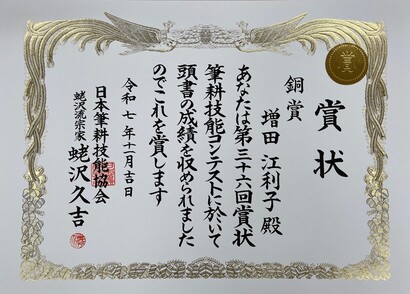 賞状
銅賞
増田 江利子 殿
あなたは第三十六回賞状
筆耕技能コンテストに於いて
頭書の成績を収められました
のでこれを賞します
令和七年十一月吉日
日本筆耕技能協会
蛯沢流宗家 蛯沢久吉